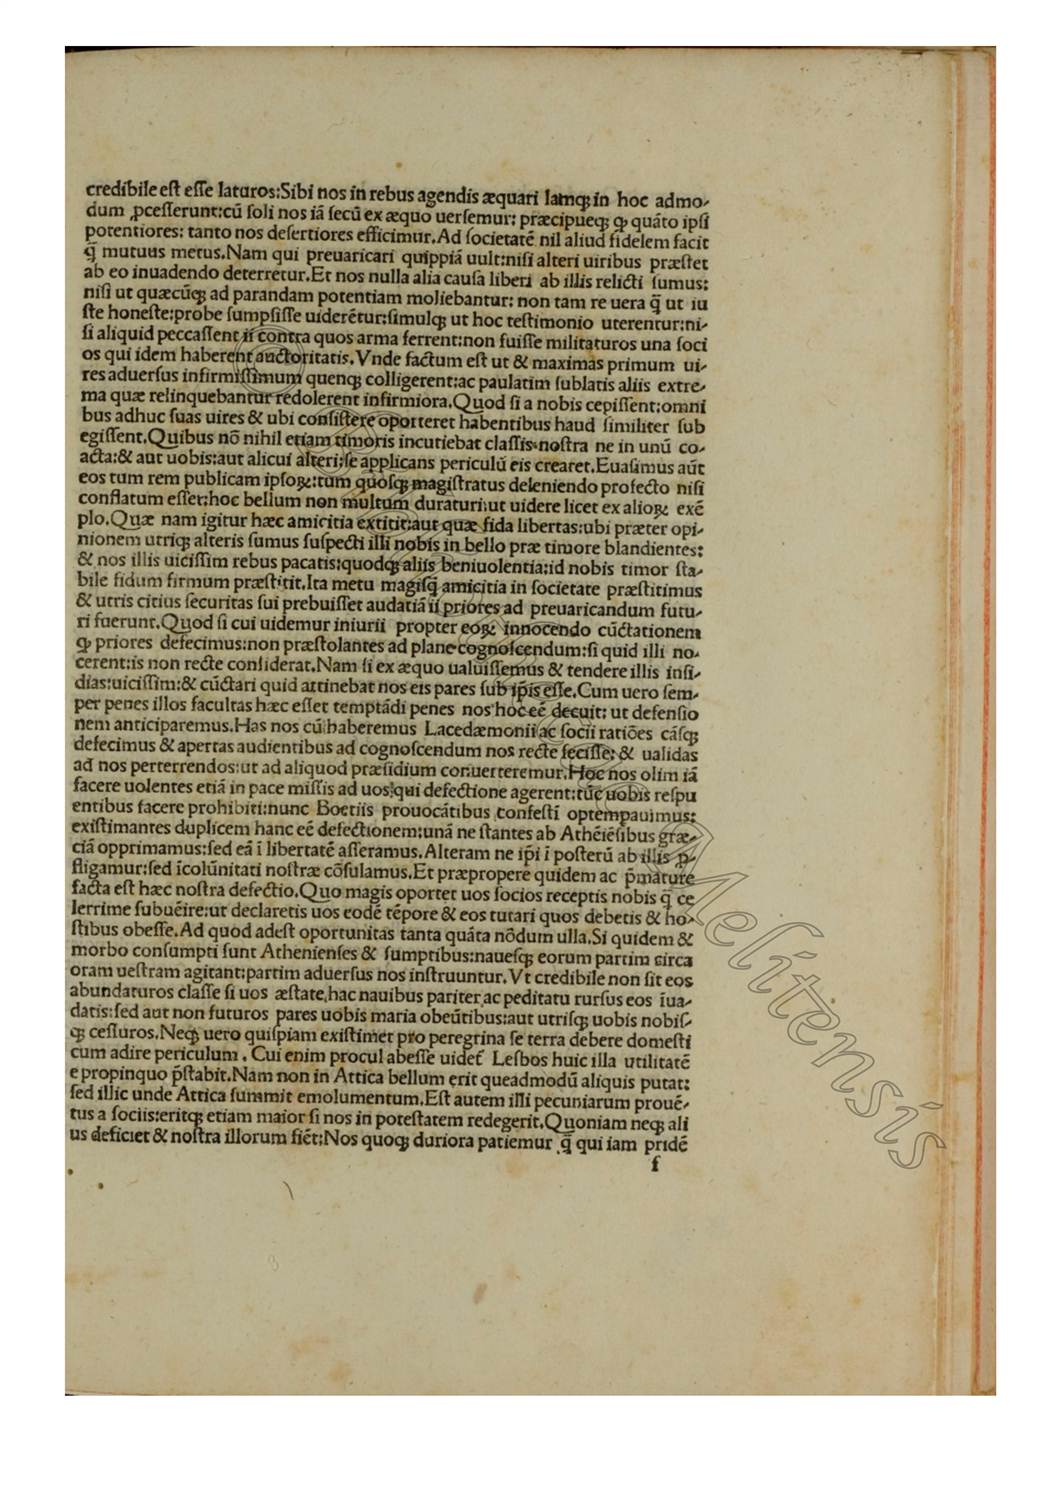 credibile eſt eſſe laturos:Sibi nos in rebus agendis æquari Iamqꝫ in hoc admo⸗
dum ꝓceſſerunt:cū ſoli nos iā ſecū ex æquo uerſemur: præcipueqꝫ ꝙ quāto ipſi
potentiores: tanto nos deſertiores efficimur.Ad ſocietatē nil aliud fidelem facit
q̄ mutuus metus.Nam qui preuaricari quippiā uult:niſi alteri uiribus præſtet
ab eo inuadendo deterretur.Et nos nulla alia cauſa liberi ab illis relicti ſumus:
niſi ut quæcūqꝫ ad parandam potentiam moliebantur: non tam re uera q̄ ut iu
ſte honeſte:probe ſumpſiſſe uiderētur:ſimulqꝫ ut hoc teſtimonio uterentur:ni⸗
ſi aliquid peccaſſent ii contra quos arma ferrent:non fuiſſe militaturos una ſoci
os qui idem haberent auctoritatis.Vnde factum eſt ut & maximas primum ui⸗
res aduerſus infirmiſſimum quenqꝫ colligerent:ac paulatim ſublatis aliis extre⸗
ma quæ relinquebantur redolerent infirmiora.Quod ſi a nobis cepiſſent:omni
bus adhuc ſuas uires & ubi conſiſtere oporteret habentibus haud ſimiliter ſub
egiſſent.Quibus nō nihil etiam timoris incutiebat claſſis noſtra ne in unū co⸗
acta:& aut uobis:aut alicui alteri:ſe applicans periculū eis crearet.Euaſimus aūt
eos tum rem publicam ipſoꝝ:tum quoſqꝫ magiſtratus deleniendo profecto niſi
conflatum eſſet:hoc bellum non multum duraturi:ut uidere licet ex alioꝝ exē
plo.Quæ nam igitur hæc amicitia extitit:aut quæ fida libertas:ubi præter opi⸗
nionem utriqꝫ alteris ſumus ſuſpecti illi nobis in bello præ timore blandientes:
& nos illis uiciſſim rebus pacatis:quodqꝫ aliis beniuolentia:id nobis timor ſta⸗
bile fidum firmum præſtitit.Ita metu magiſq̄ amicitia in ſocietate præſtitimus
& utris citius ſecuritas ſui prebuiſſet audatiā ii priores ad preuaricandum futu⸗
ri fuerunt.Quod ſi cui uidemur iniurii propter eoꝝ innocendo cūctationem
ꝙ priores defecimus:non præſtolantes ad plane cognoſcendum:ſi quid illi no⸗
cerent:is non recte conſiderat.Nam ſi ex æquo ualuiſſemus & tendere illis inſi⸗
dias:uiciſſim:& cūctari quid attinebat nos eis pares ſub ip̄is eſſe.Cum uero ſem⸗
per penes illos facultas hæc eſſet temptādi penes nos hoc eē decuit: ut defenſio
nem anticiparemus.Has nos cū haberemus Lacedæmonii ac ſocii ratiōes cāſqꝫ
defecimus & apertas audientibus ad cognoſcendum nos recte feciſſe: & ualidas
ad nos perterrendos:ut ad aliquod præſidium conuerteremur.Hoc nos olim iā
facere uolentes etiā in pace miſſis ad uos:qui defectione agerent:tūc uobis reſpu
entibus facere prohibiti:nunc Boetiis prouocātibus confeſtī optempauimus:
exiſtimantes duplicem hanc eē defectionem:unā ne ſtantes ab Athēiēſibus græ⸗
ciā opprimamus:ſed eā ī libertatē aſſeramus.Alteram ne ip̄i ī poſterū ab illis p̄⸗
fligamur:ſed īcolūnitati noſtræ cōſulamus.Et præpropere quidem ac p̄mature
facta eſt hæc noſtra defectio.Quo magis oportet uos ſocios receptis nobis q̄ ce
lerrime ſubuēire:ut declaretis uos eodē tēpore & eos tutari quos debetis & ho⸗
ſtibus obeſſe.Ad quod adeſt oportunitas tanta quāta nōdum ulla.Si quidem &
morbo conſumpti ſunt Athenienſes & ſumptibus:naueſqꝫ eorum partim circa
oram ueſtram agitant:partim aduerſus nos inſtruuntur.Vt credibile non ſit eos
abundaturos claſſe ſi uos æſtate,hac nauibus pariter,ac peditatu rurſus eos īua⸗
datis:ſed aut non futuros pares uobis maria obeūtibus:aut utriſqꝫ uobis nobiſ⸗
qꝫ ceſſuros.Neqꝫ uero quiſpiam exiſtimet pro peregrina ſe terra debere domeſti
cum adire periculum. Cui enim procul abeſſe uidet̄ Leſbos huic illa utilitatē
e propinquo p̄ſtabit.Nam non in Attica bellum erit queadmodū aliquis putat:
ſed illic unde Attica ſummit emolumentum.Eſt autem illi pecuniarum prouē⸗
tus a ſociis:eritqꝫ etiam maior ſi nos in poteſtatem redegerit.Quoniam neqꝫ ali
us deficiet & noſtra illorum fiēt:Nos quoqꝫ duriora patiemur q̄ qui iam pridē
f
Melitensis